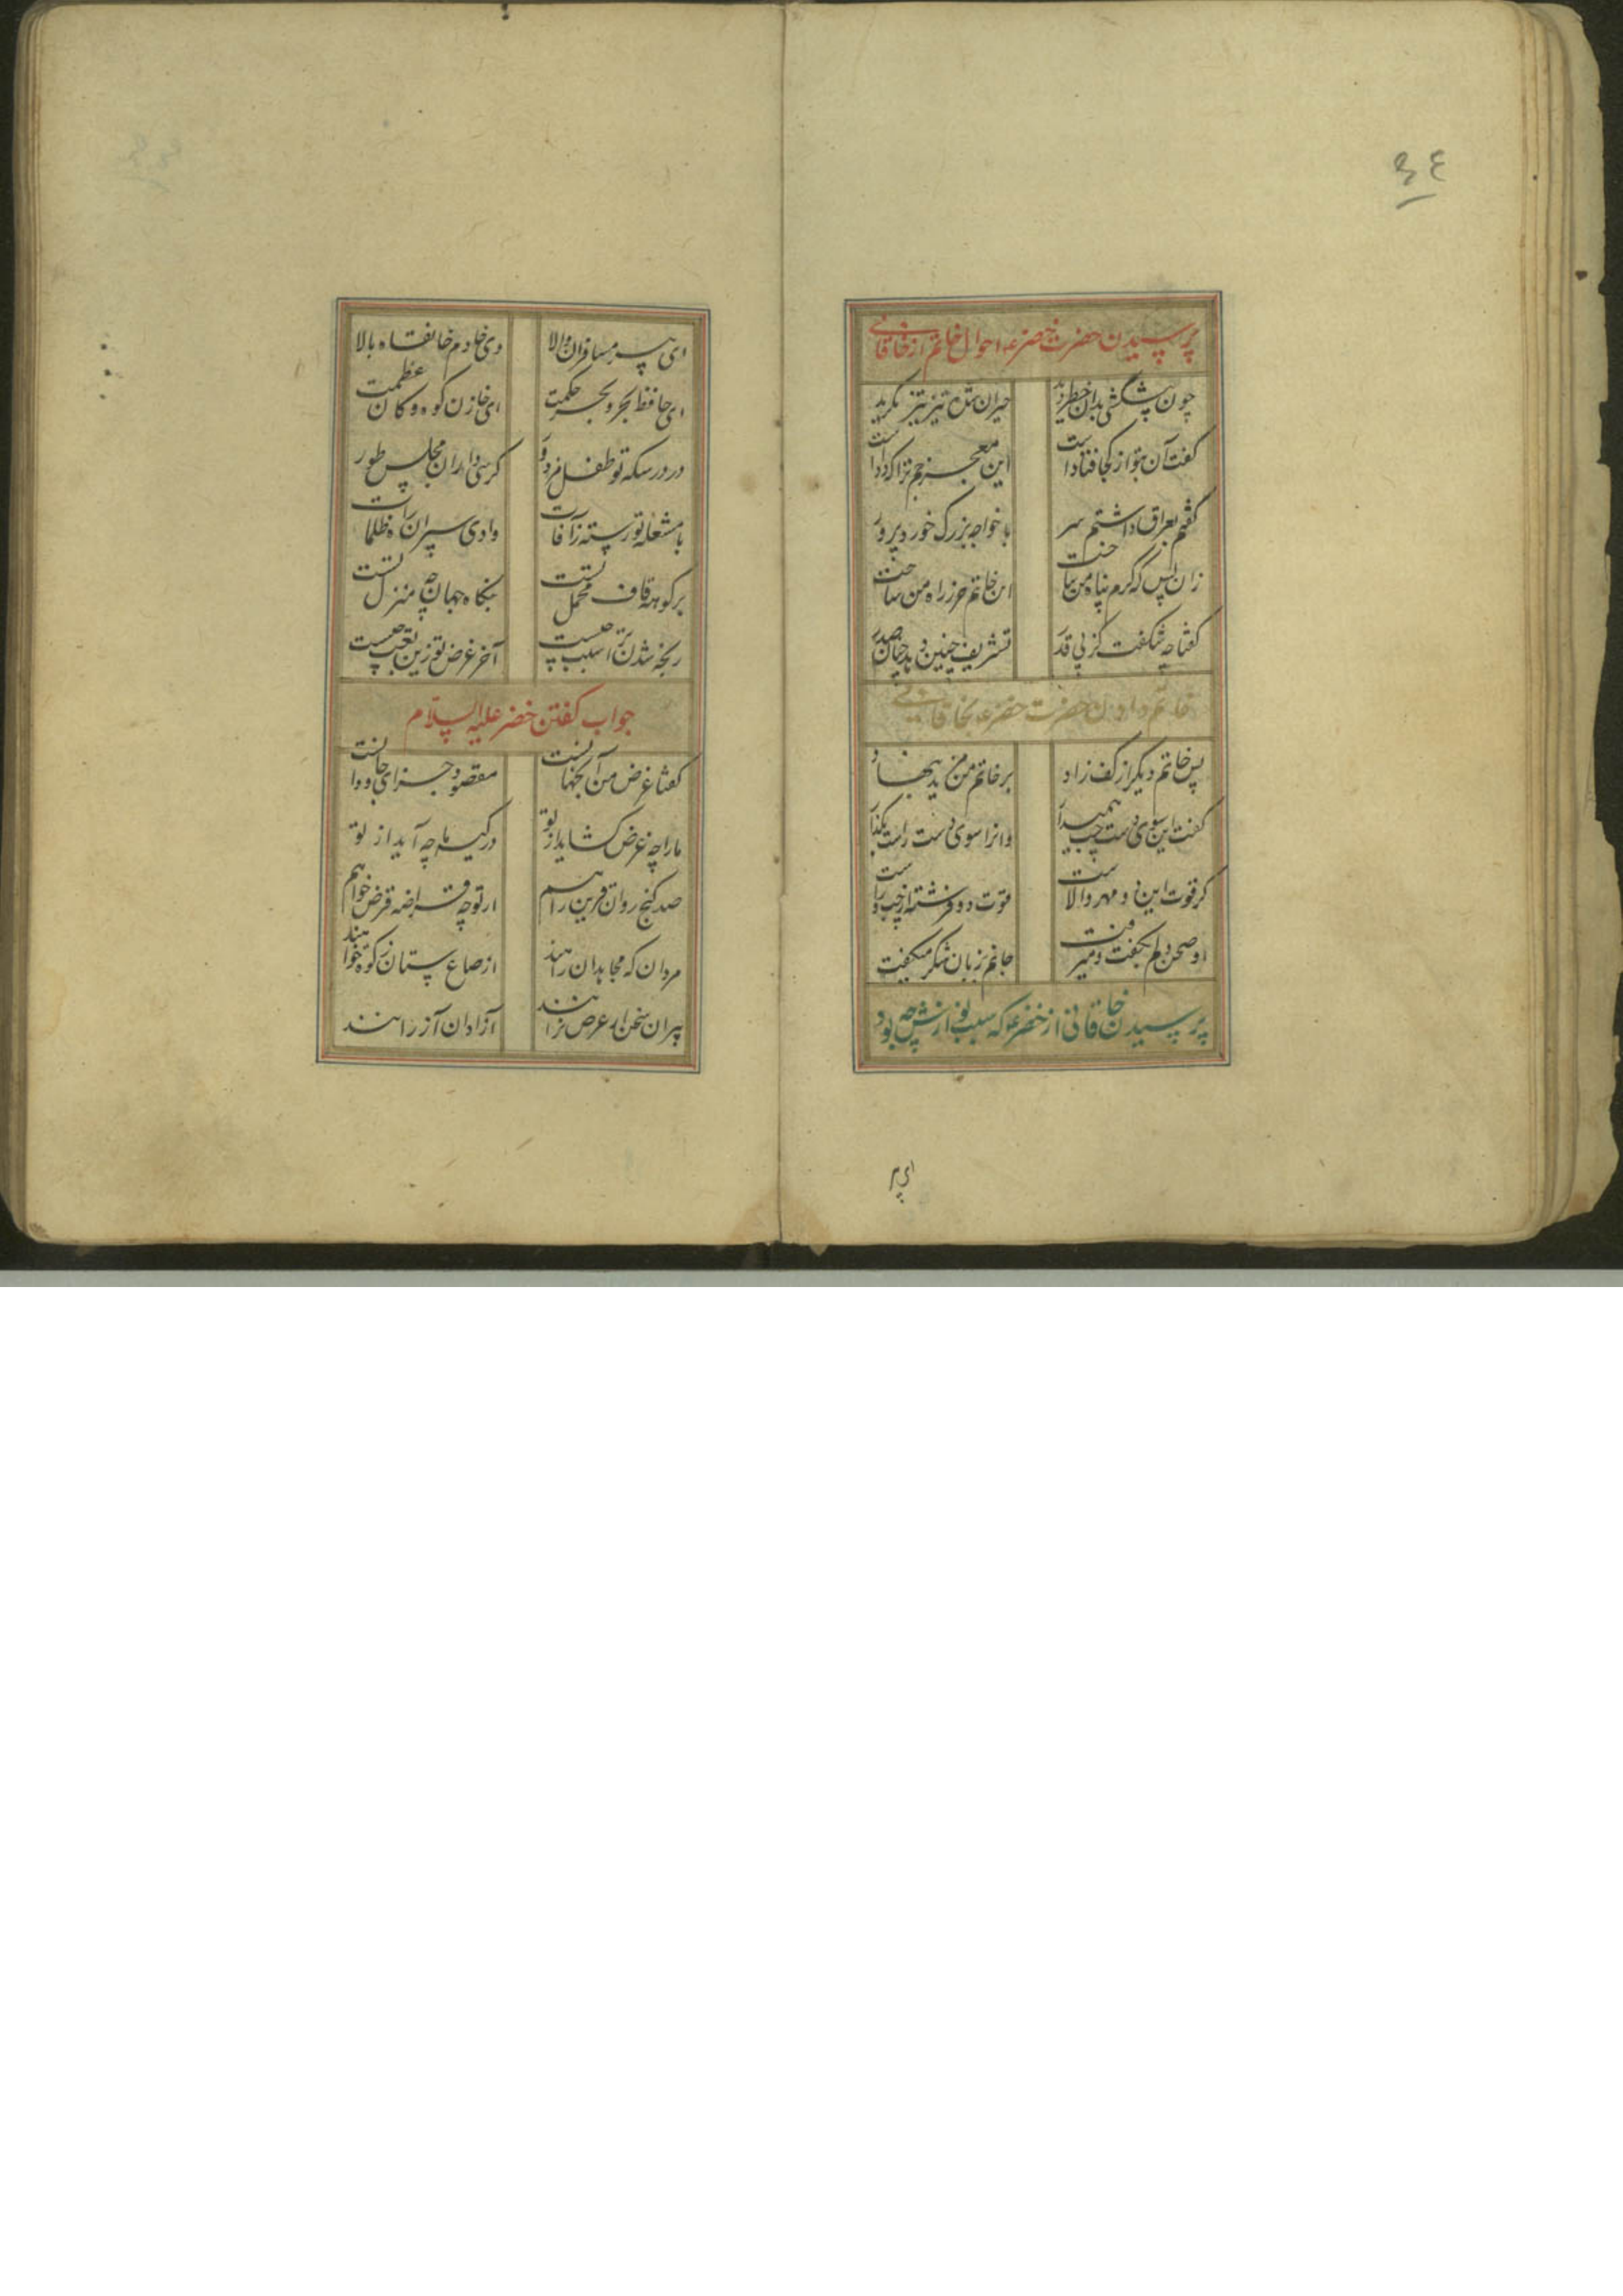 ۳۴
پرسیدن حضرت خضر ع احوال خاتم از خاقانی
چون پیشکشی بدان خطر دید حیران شده تیز تیز نگرید
گفت آن بتو از کجا فتادست این معجز جم ترا که دادست
گفتم بعراق داشتم سر با خواجه بزرگ خورد پرور
زان پس که کرم پناه من ساخت این خاتم حرز راه من ساخت
گفتا چه شگفت کز پی قدر تشریف چنین دهد چنان صدر
خاتم دادن حضرت خضر ع بخاقانی
پس خاتم دیگر از کف زاد بر خاتم من مزید بنهاد
گفت این سوی دست چپ همیدار وانرا سوی دست راست بگذار
کز قوت این دو مهر والاست قوت دو فرشته از چپ و راست
او صحن دلم بگفت و میرفت جانم بزبان شکر میگفت
پرسیدن خاقانی از خضر ع که سبب نوازش چه بود
ای پیر
ای پیر مسافران والا وی خادم خانقاه بالا
ای حافظ بحر و بحر حکمت ای خازن کوه و کان عظمت
در درسکه تو طفل مزدور کرسی داران مجلس طور
با مشعله تو رسته ز آفات وادی سپران راه ظلمات
بر کوهه قاف محمل تست بنگاه جهان چه منزل تست
رنجه شدن ترا سبب چیست آخر غرض تو زین تعب چیست
جواب گفتن خضر علیه السلام
گفتا غرض من آنجهانست مقصود جزای جاودانست
ما را چه غرض گشاید از تو در کیسه ما چه آید از تو
صد گنج روان قرین راهم از تو چه قراضه قرض خواهم
مردان که مجاهدان راهند از صاع ستان زکوه خواهند
پیران سخن از عرض نرانند آزادان آز را نهند